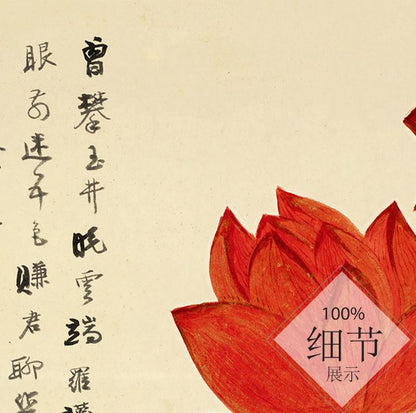 曾攀玉井眺雲端羅
眼前迷色賺君聊
100%
细节
展示